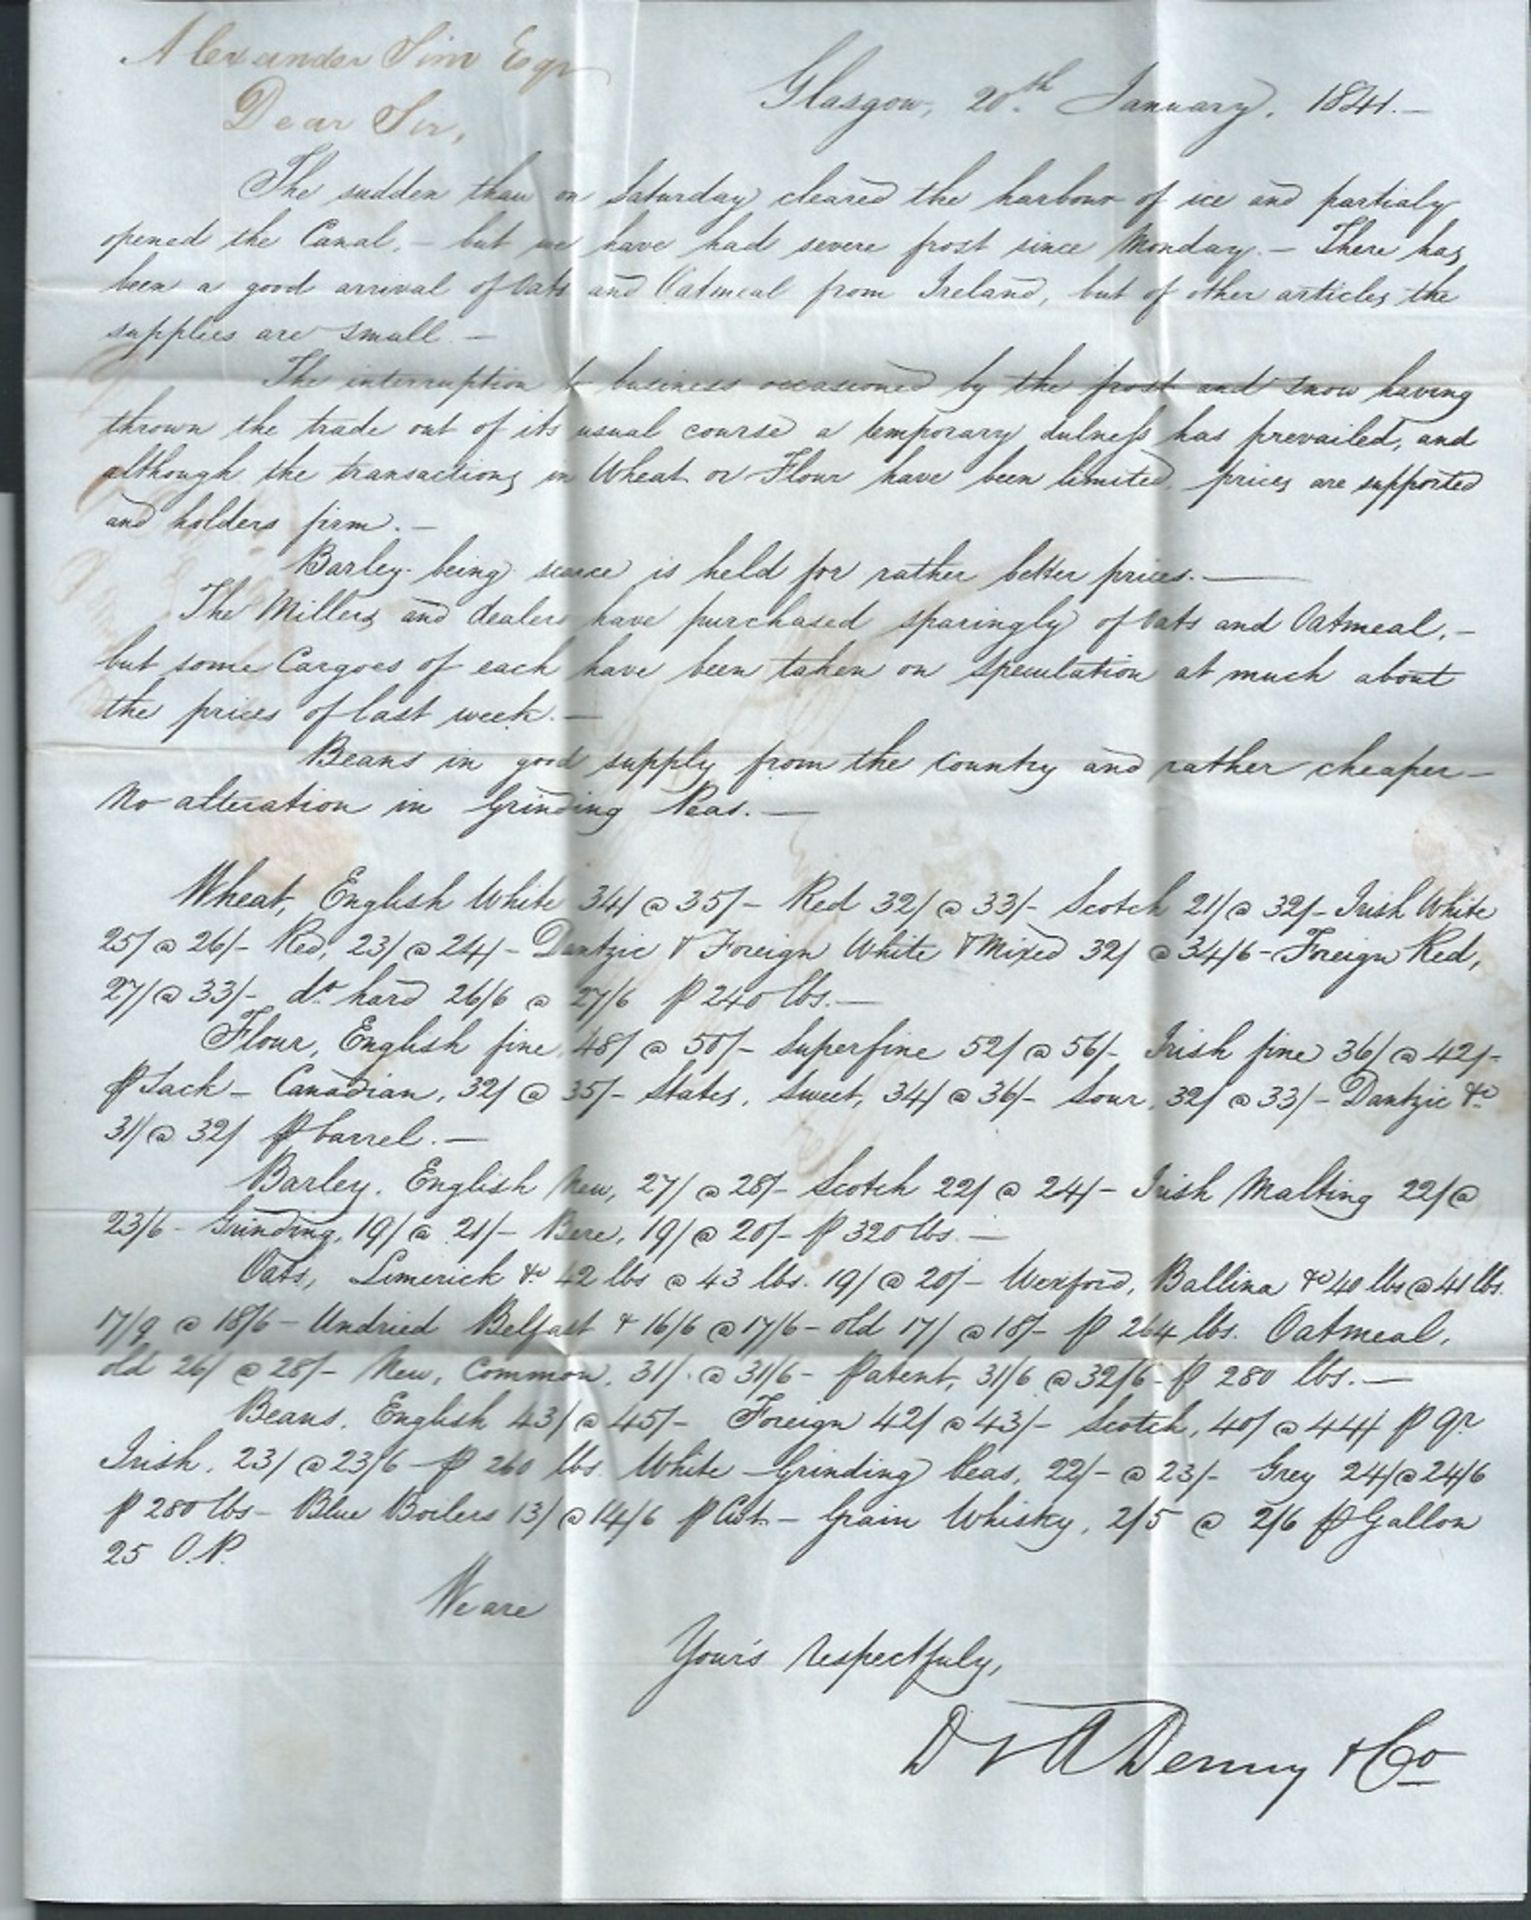 Alexander Sim Esqr
Glasgow, 20th January, 1841.—
Dear Sir,
The sudden thaw on Saturday cleared the harbour of ice and partialy
opened the Canal,— but we have had severe frost since Monday.— There has
been a good arrival of Oats and Oatmeal from Ireland, but of other articles the
supplies are small.—
The interruption to business occasioned by the frost and snow having
thrown the trade out of its usual course a temporary dulness has prevailed, and
although the transactions in Wheat or Flour have been limited, prices are supported
and holders firm.—
Barley being scarce is held for rather better prices.—
The Millers and dealers have purchased sparingly of Oats and Oatmeal,—
but some Cargoes of each have been taken on speculation at much about
the prices of last week.—
Beans in good supply from the Country and rather cheaper—
No alteration in Grinding Peas.—
Wheat, English White 34/ @ 35/- Red 32/ @ 33/- Scotch 21/ @ 32/- Irish White
25/ @ 26/- Red, 23/ @ 24/- Dantzic & Foreign White & Mixed 32/ @ 34/6 - Foreign Red,
27/ @ 33/- do hard 26/6 @ 27/6 ⅌ 240 lbs.—
Flour, English fine, 48/ @ 50/- Superfine 52/ @ 56/- Irish fine 36/ @ 42/-
⅌ Sack - Canadian, 32/ @ 35/- States, Sweet, 34/ @ 36/- Sour, 32/ @ 33/- Dantzic &c
31/ @ 32/ ⅌ barrel.—
Barley, English New, 27/ @ 28/- Scotch 22/ @ 24/- Irish Malting 22/ @
23/6 - Grinding, 19/ @ 21/- Bere, 19/ @ 20/- ⅌ 320 lbs.—
Oats, Limerick &c 42 lbs @ 43 lbs. 19/ @ 20/- Wexford, Ballina &c 40 lbs @ 41 lbs.
17/9 @ 18/6 - Undried Belfast & 16/6 @ 17/6 - old 17/ @ 18/- ⅌ 264 lbs. Oatmeal,
old 26/ @ 28/- New, Common, 31/. @ 31/6 - Patent, 31/6 @ 32/6 - ⅌ 280 lbs.—
Beans, English 43/ @ 45/- Foreign 42/ @ 43/- Scotch, 40/ @ 44/ ⅌ qr
Irish, 23/ @ 23/6 - ⅌ 260 lbs White Grinding Peas, 22/- @ 23/- Grey 24/ @ 24/6
⅌ 280 lbs - Blue Boilers 13/ @ 14/6 ⅌ Cwt - Grain Whisky, 2/5 @ 2/6 ⅌ Gallon
25 O.P.
We are
Your's respectfuly,
D & A Denny & Co